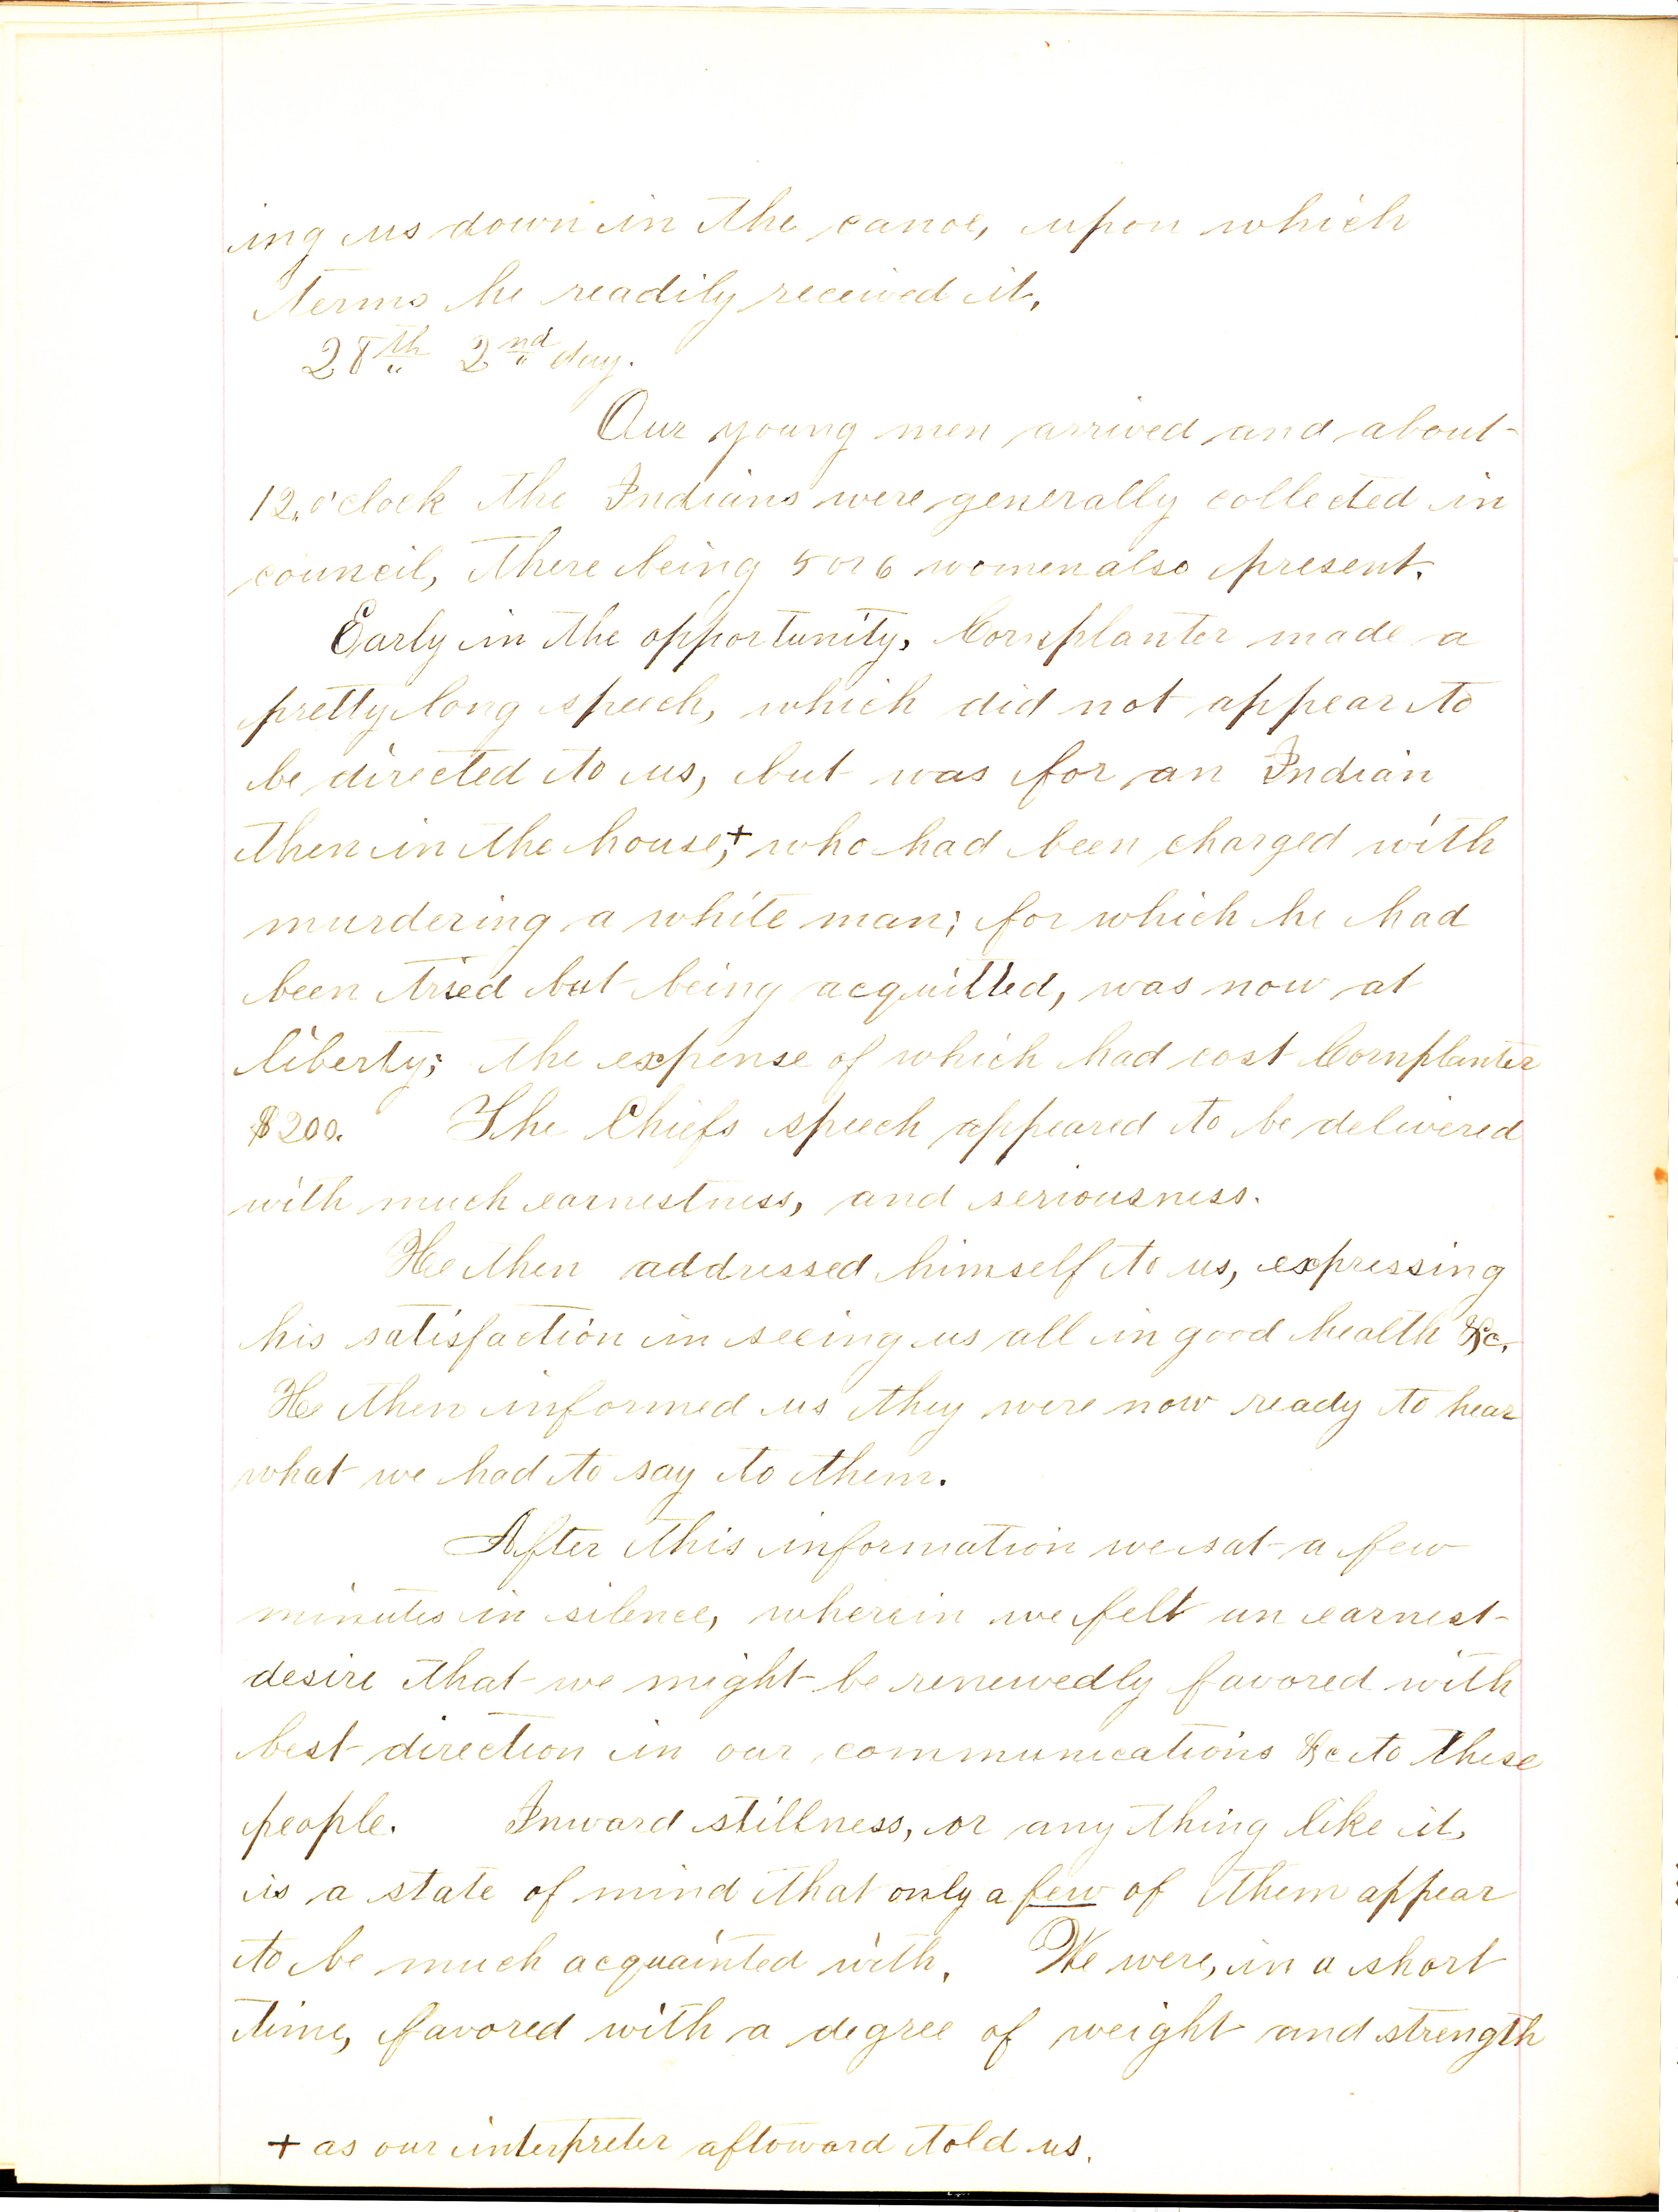 ing us down in the canoe, upon which
terms he readily received it.
28th 2nd day.
Our young men arrived and about
12, o'clock the Indians were generally collected in
council, there being 5 or 6 women also present.
Early in the opportunity, Cornplanter made a
pretty long speech, which did not appear to
be directed to us, but was for an Indian
then in the house,+ who had been charged with
murdering a white man; for which he had
been tried but being acquitted, was now at
liberty; the expense of which had cost Cornplanter
$200. The Chiefs speech appeared to be delivered
with much earnestness, and seriousness.
He then addressed himself to us, expressing
his satisfaction in seeing us all in good health &c.
He then informed us they were now ready to hear
what we had to say to them.
After this information we sat a few
minutes in silence, wherein we felt an earnest
desire that we might be renewedly favored with
best direction in our communications &c to these
people. Inward stillness, or any thing like it,
is a state of mind that only a few of them appear
to be much acquainted with. We were, in a short
time, favored with a degree of weight and strength
+ as our interpreter aftoward told us.